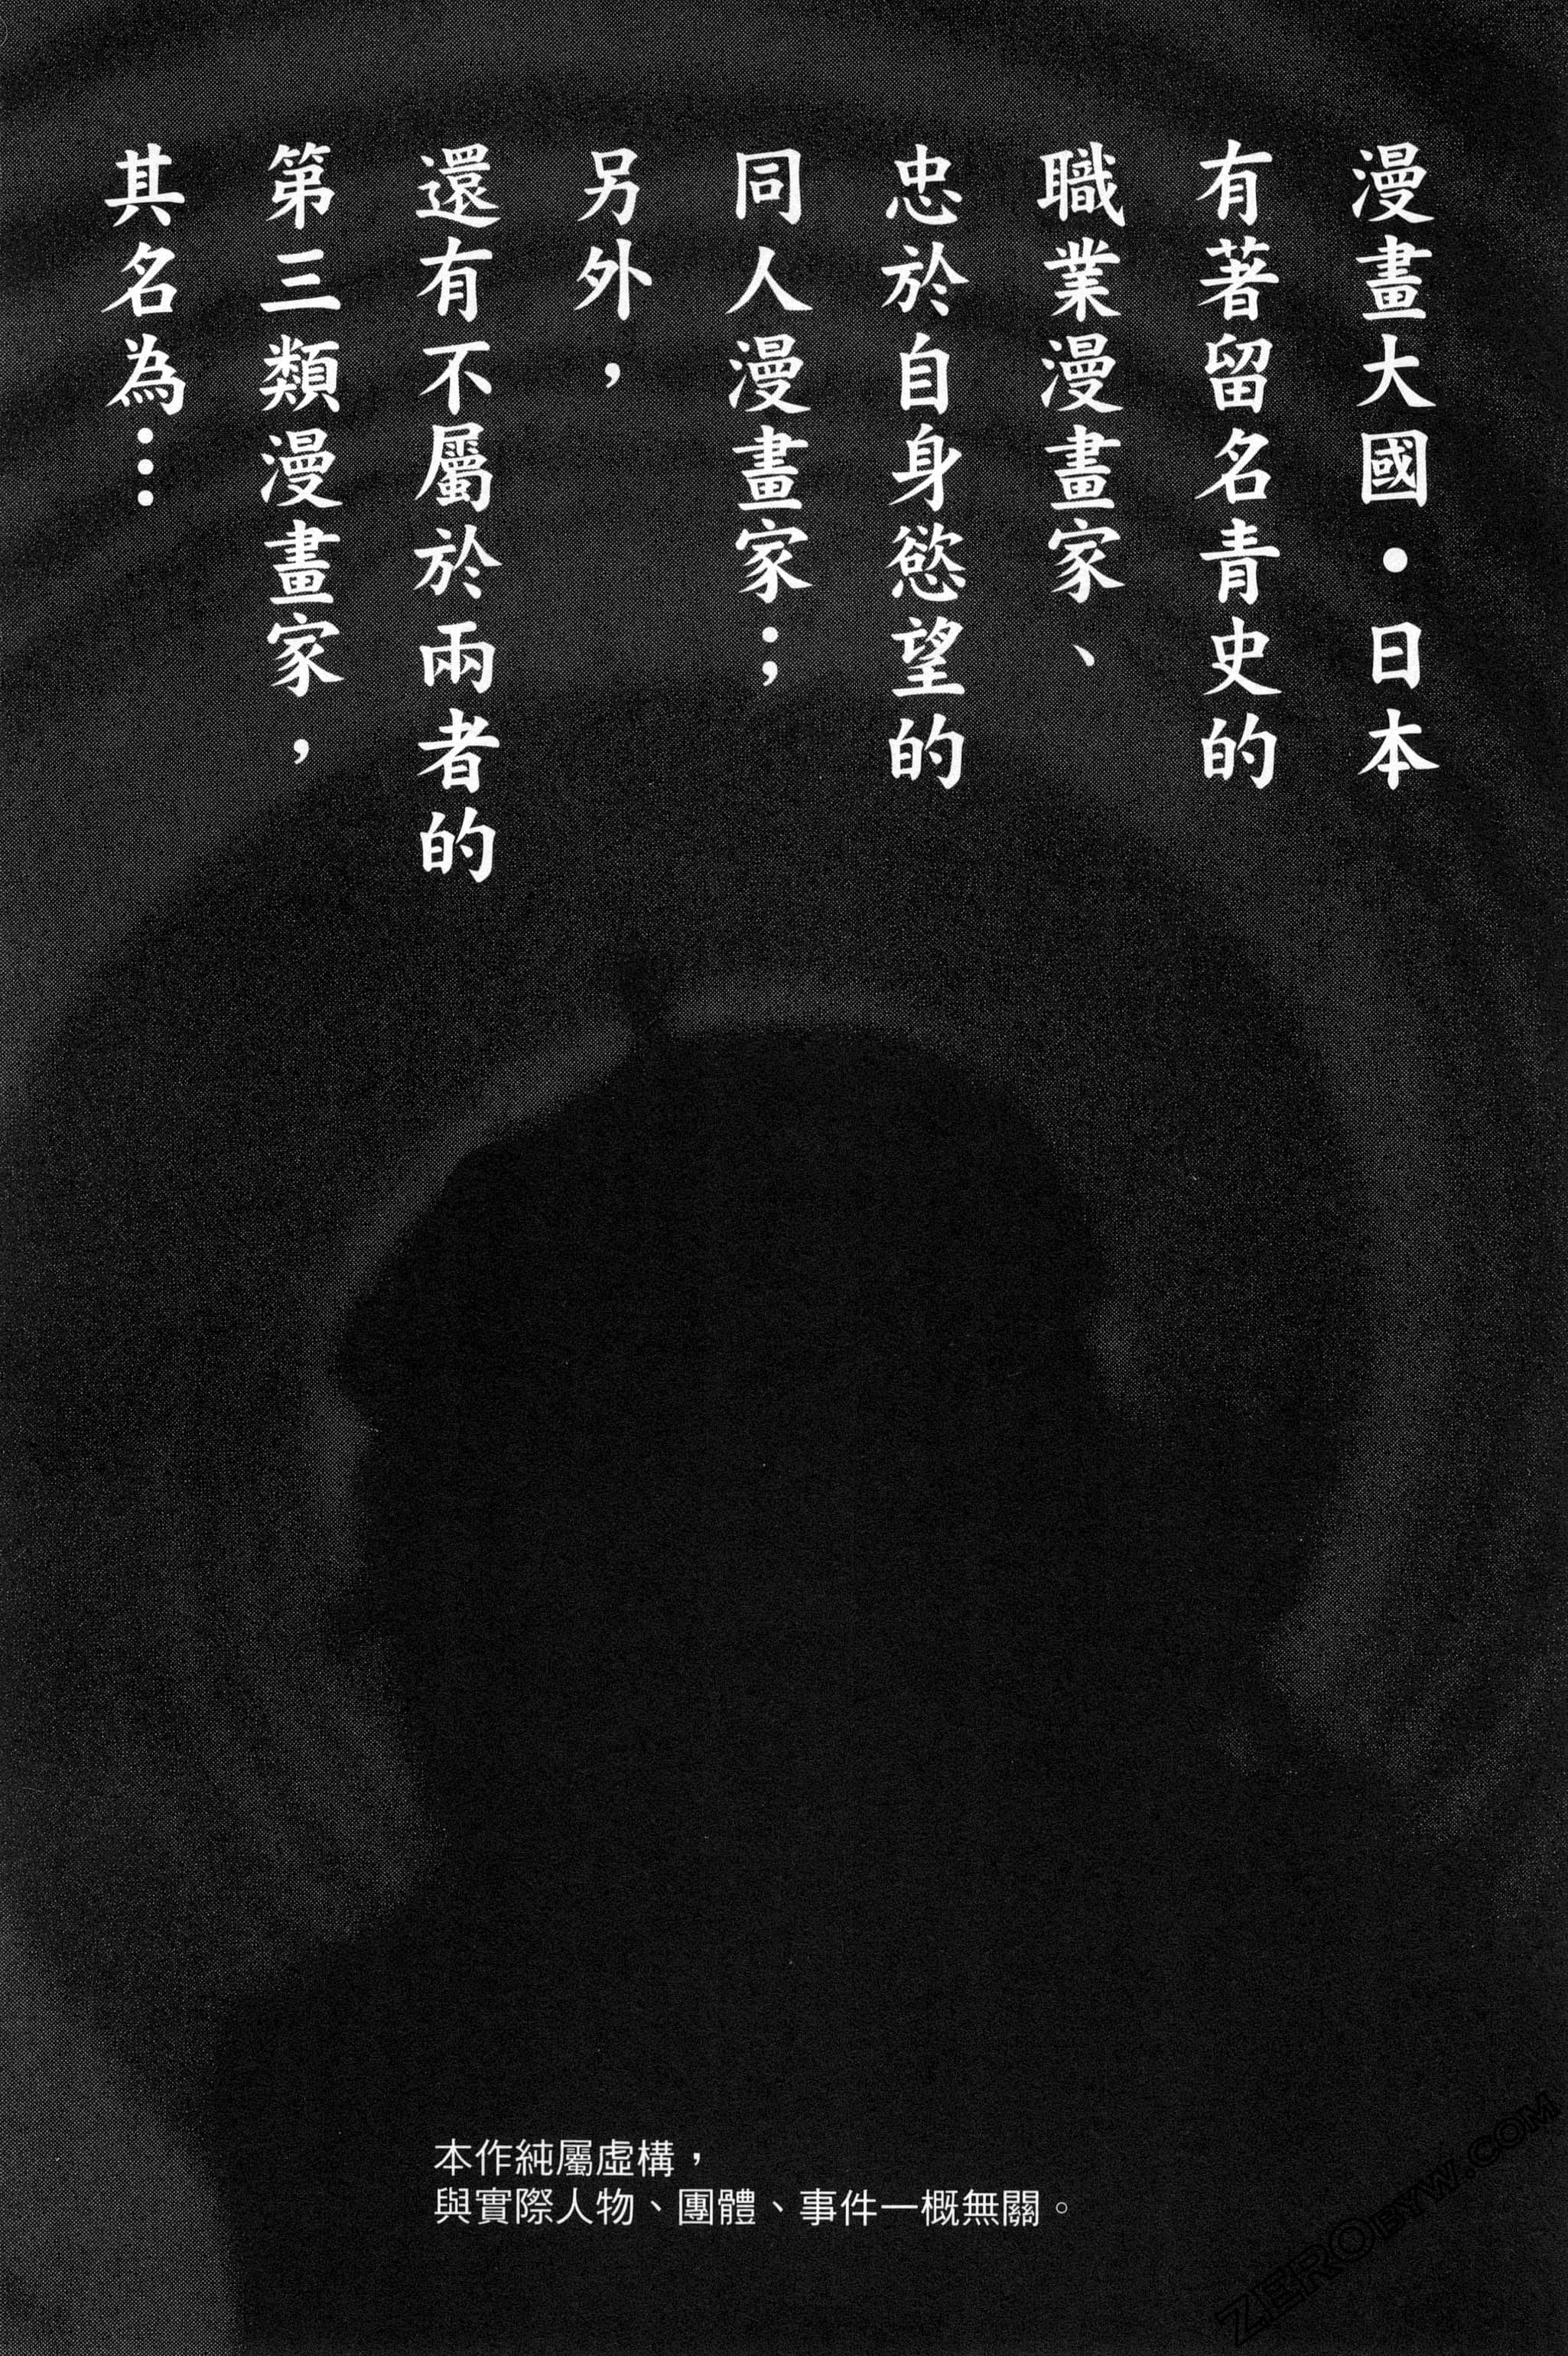 漫畫大國・日本
有著留名青史的
職業漫畫家、
忠於自身慾望的
同人漫畫家；
另外，
還有不屬於兩者的
第三類漫畫家，
其名為……
本作純屬虛構，
與實際人物、團體、事件一概無關。
ZEROBYW.COM